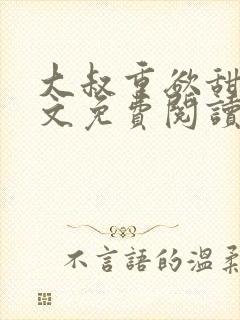 大叔重欲甜
文免費閱讀
不言語的溫柔